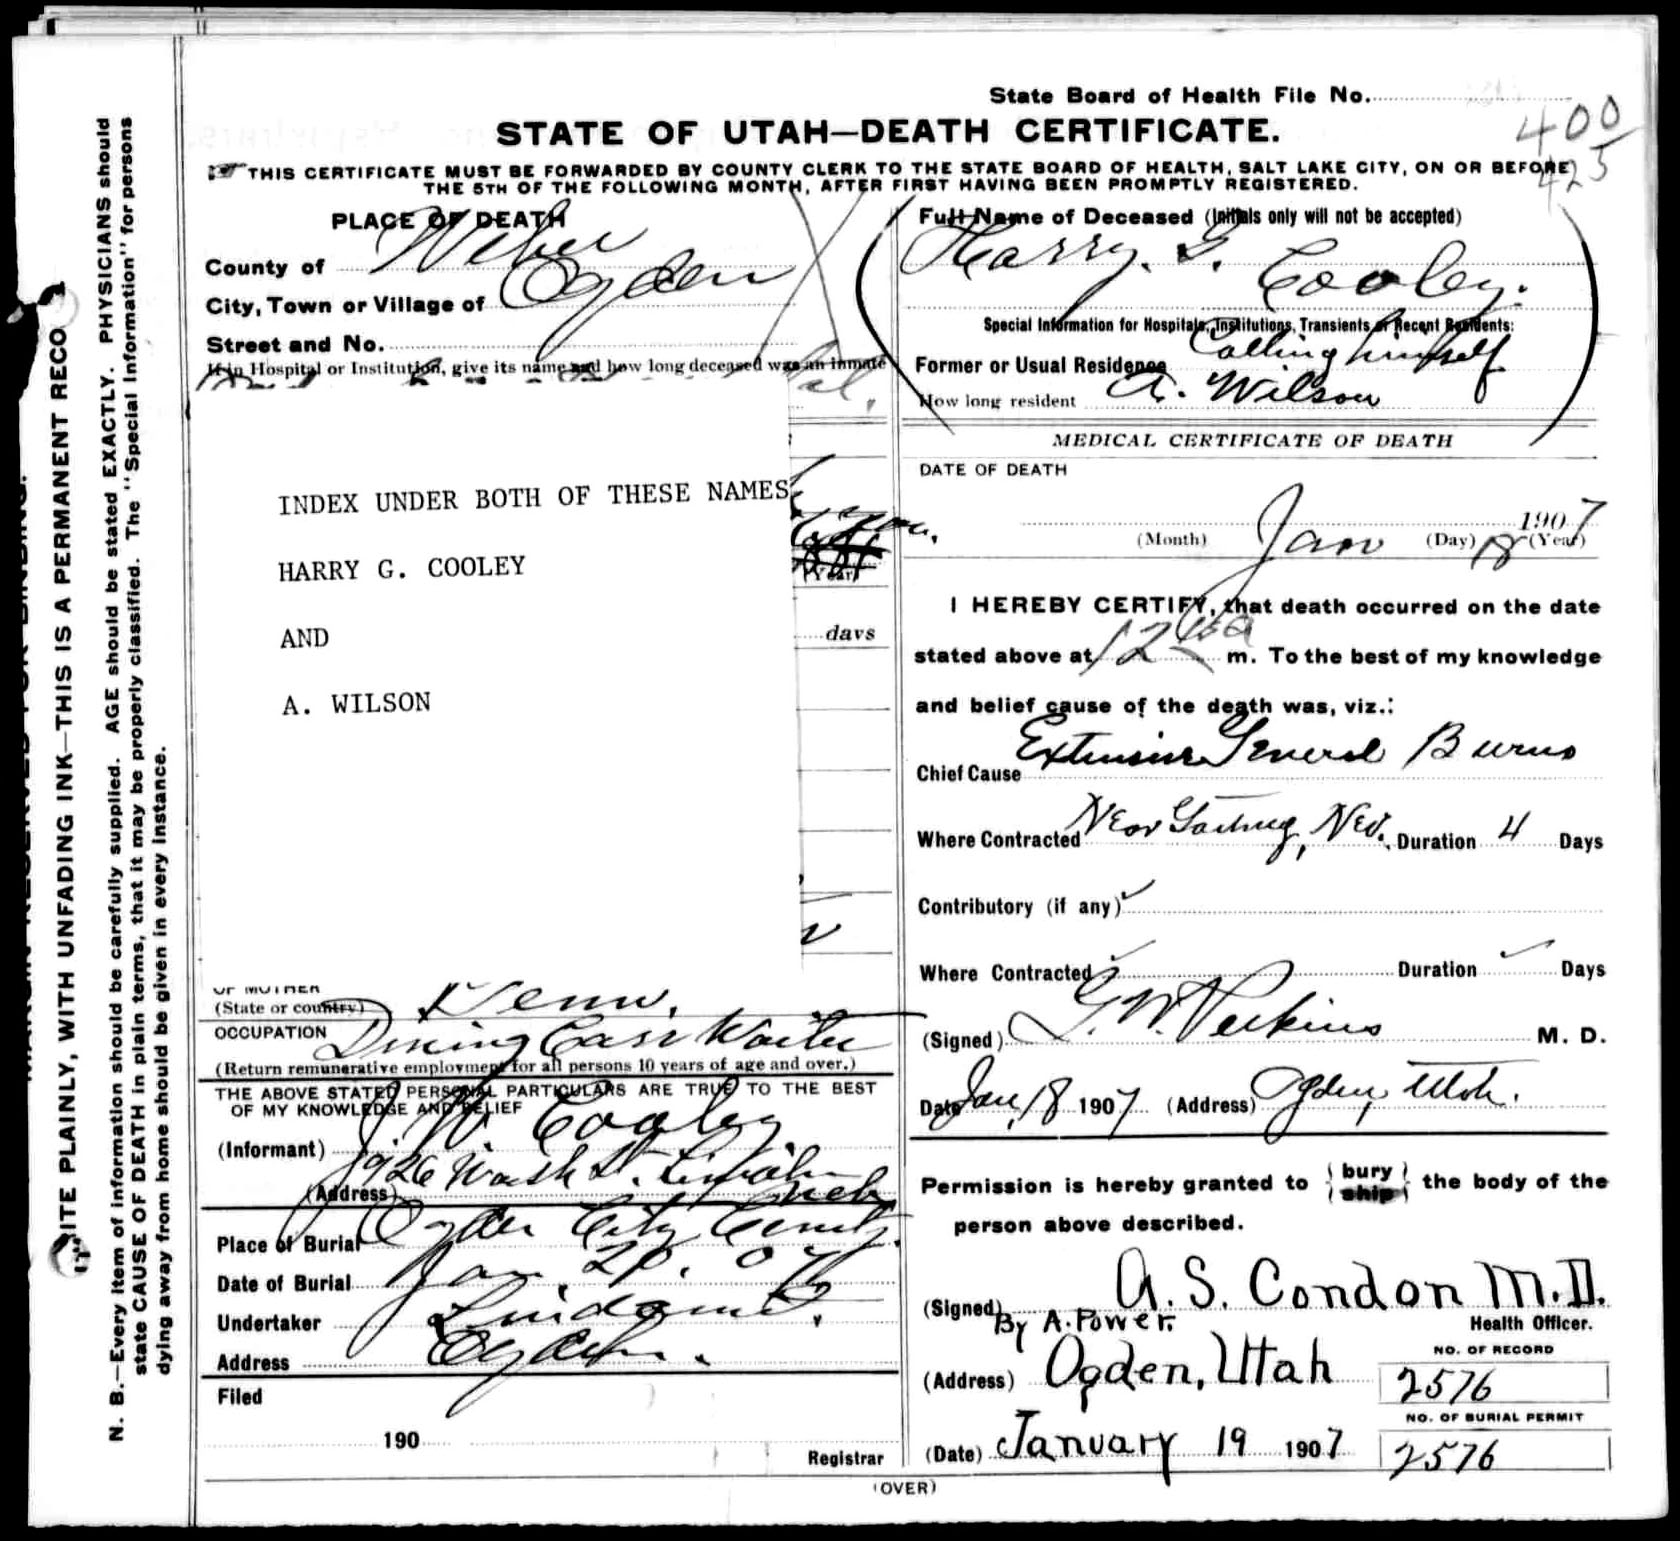 State Board of Health File No.
STATE OF UTAH—DEATH CERTIFICATE.
400
425
THIS CERTIFICATE MUST BE FORWARDED BY COUNTY CLERK TO THE STATE BOARD OF HEALTH, SALT LAKE CITY, ON OR BEFORE
THE 5TH OF THE FOLLOWING MONTH, AFTER FIRST HAVING BEEN PROMPTLY REGISTERED.
PLACE OF DEATH
County of Weber
City, Town or Village of Ogden
Street and No.
If in Hospital or Institution, give its name and how long deceased was an inmate
INDEX UNDER BOTH OF THESE NAMES
HARRY G. COOLEY
AND
A. WILSON
(Year)
days
OF MOTHER
(State or country) Tenn.
OCCUPATION Dining Car Waiter
(Return remunerative employment for all persons 10 years of age and over.)
THE ABOVE STATED PERSONAL PARTICULARS ARE TRUE TO THE BEST
OF MY KNOWLEDGE AND BELIEF
(Informant) J. W. Cooley
(Address) 1926 Wash St. Lincoln Neb
Place of Burial Ogden City Cemty.
Date of Burial Jan. 20. 07
Undertaker
Address Ogden.
Filed
190
Registrar
Full Name of Deceased (Initials only will not be accepted)
Harry. G. Cooley.
Special Information for Hospitals, Institutions, Transients or Recent Residents:
Former or Usual Residence Calling himself
How long resident A. Wilson
MEDICAL CERTIFICATE OF DEATH
DATE OF DEATH
Jan 18 1907
(Month) (Day) (Year)
I HEREBY CERTIFY, that death occurred on the date
stated above at 12 45 a m. To the best of my knowledge
and belief cause of the death was, viz.:
Chief Cause Extensive General Burns
Where Contracted Near Nev. Duration 4 Days
Contributory (if any)
Where Contracted Duration Days
(Signed) G. W. Perkins M. D.
Date Jan, 18 1907 (Address) Ogden, Utah.
Permission is hereby granted to { bury ship } the body of the
person above described.
(Signed) A. S. Condon M.D.
By A. Power. Health Officer.
(Address) Ogden, Utah
NO. OF RECORD
2576
NO. OF BURIAL PERMIT
(Date) January 19 1907
2576
(OVER)
MARGIN RESERVED FOR BINDING.
WRITE PLAINLY, WITH UNFADING INK—THIS IS A PERMANENT RECO
N. B.—Every item of information should be carefully supplied. AGE should be stated EXACTLY. PHYSICIANS should
state CAUSE OF DEATH in plain terms, that it may be properly classified. The "Special Information" for persons
dying away from home should be given in every instance.